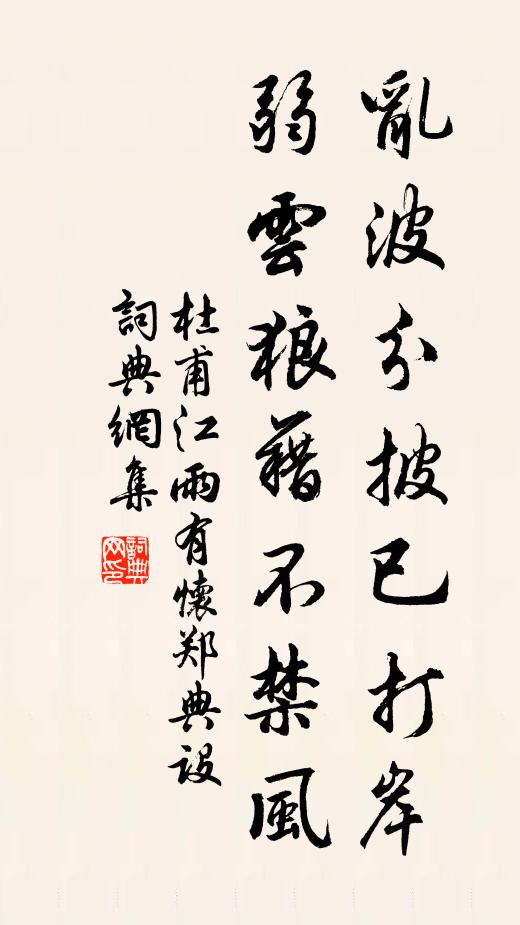 亂波分披已打岸
弱雲狼藉不禁風
杜甫江雨有懷郑典设
詞典網集
詞典